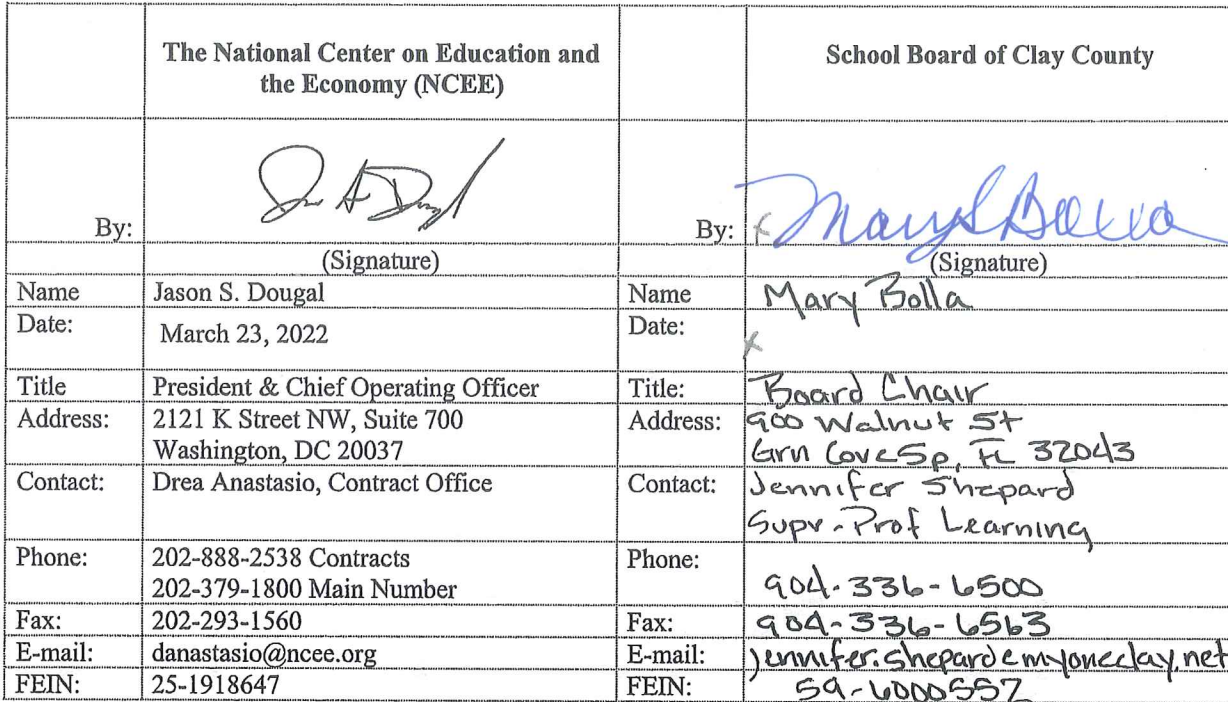 The National Center on Education and
the Economy (NCEE)
School Board of Clay County
By:
By: x
(Signature)
(Signature)
Name Jason S. Dougal
Name Mary Bolla
Date: March 23, 2022
Date: x
Title President & Chief Operating Officer
Title: Board Chair
Address: 2121 K Street NW, Suite 700
Washington, DC 20037
Address: 900 Walnut St
Grn Cove Sp, FL 32043
Contact: Drea Anastasio, Contract Office
Contact: Jennifer Shepard
Supv. Prof Learning
Phone: 202-888-2538 Contracts
202-379-1800 Main Number
Phone: 904-336-6500
Fax: 202-293-1560
Fax: 904-336-6563
E-mail: danastasio@ncee.org
E-mail: jennifer.shepard@myoneclay.net
FEIN: 25-1918647
FEIN: 59-6000557